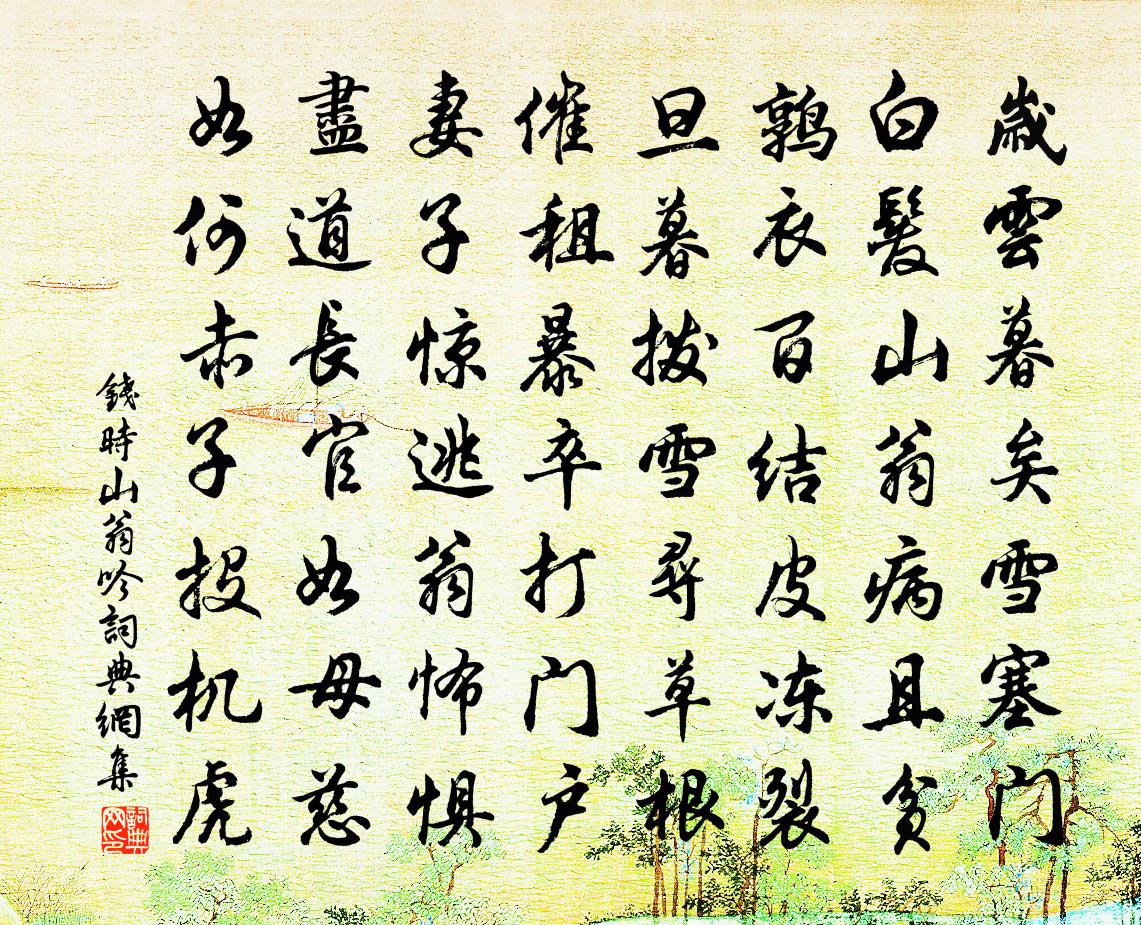 歲雲暮矣雪塞门
白髮山翁病且貧
鶉衣百结皮冻裂
旦暮拨雪尋草根
催租暴卒打门户
妻子惊逃翁怖惧
盡道長官如母慈
如何赤子投机虎
錢時山翁吟詞典網集
詞典网印